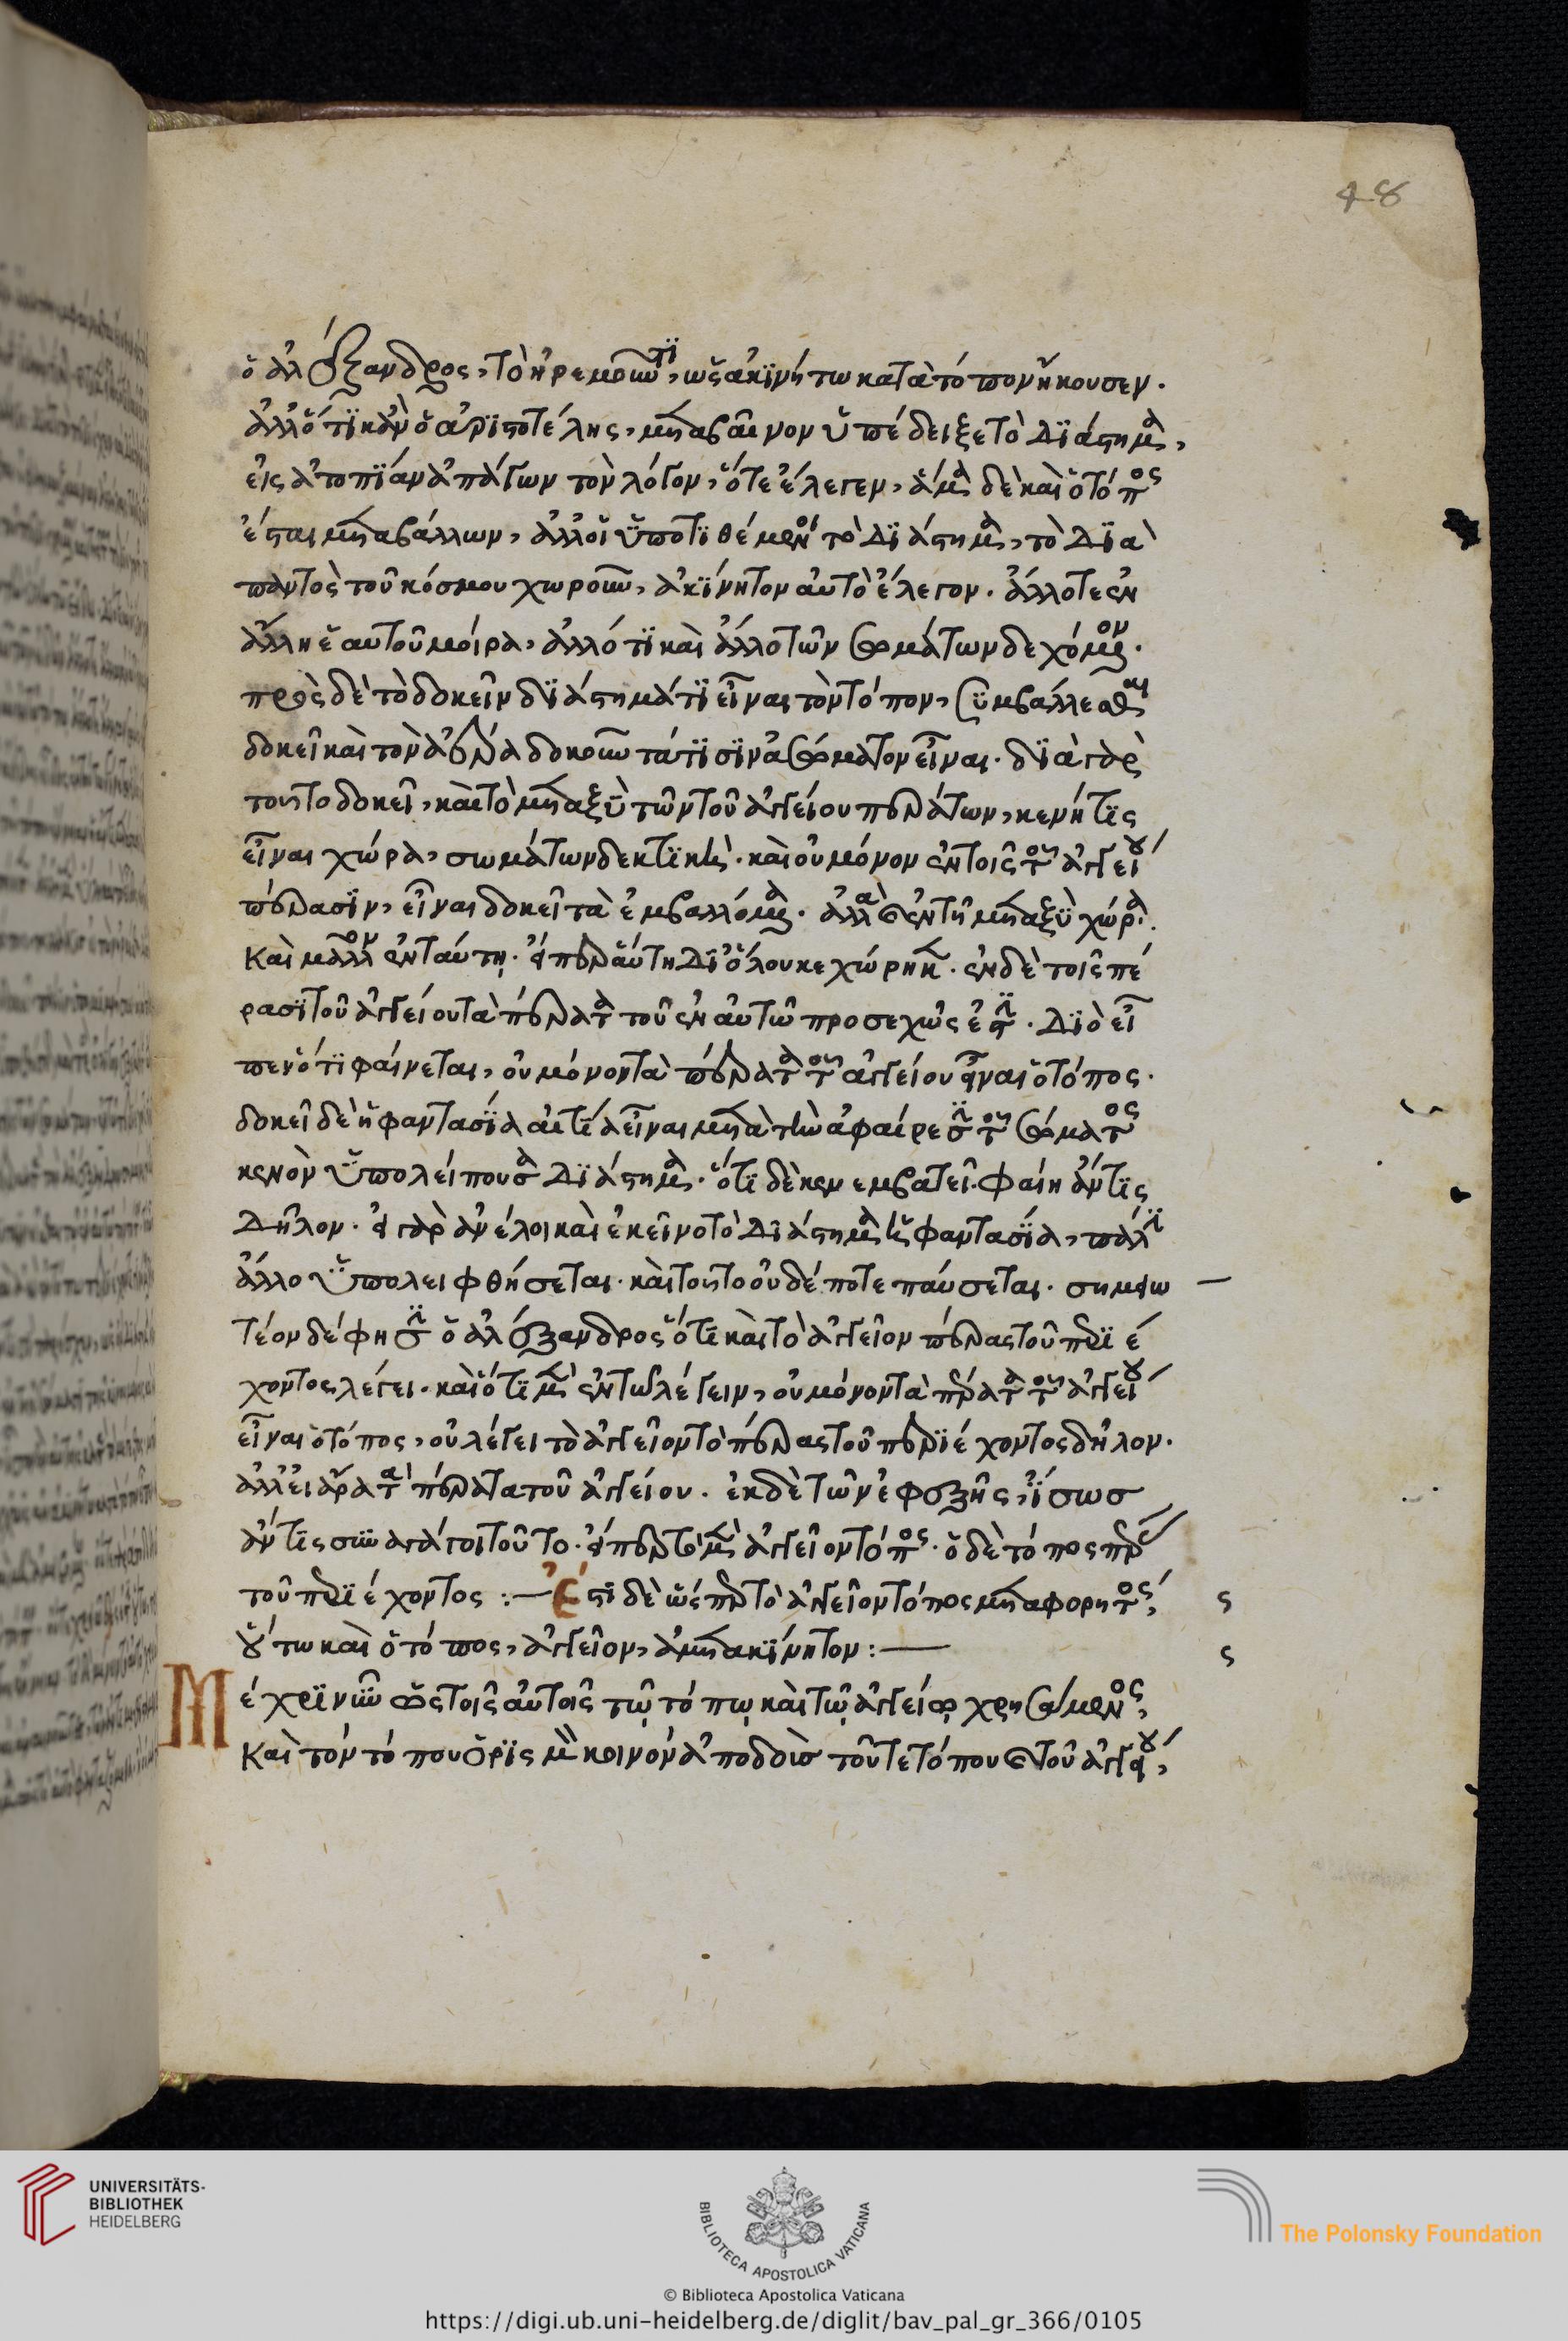 48
ὁ ἀλέξανδρος, τὸ ἠρεμοῦντι, ὡς ἀκινήτω κατὰ τόπον ἤκουσεν.
ἀλλ' ὅτι κἂν ὁ ἀριστοτέλης, μεταβαῖνον ὑπέδειξε τὸ διάστημα,
εἰς ἀτοπίαν ἀπάγων τὸν λόγον, ὅτε ἔλεγεν, ἅμα δὲ καὶ ὁ τόπος
ἔσται μεταβάλλων, ἀλλ' οἱ ὑποτιθέμενοι τὸ διάστημα, τὸ διὰ
παντὸς τοῦ κόσμου χωροῦν, ἀκίνητον αὐτὸ ἔλεγον. ἄλλοτε ἐν
ἄλλη ἑαυτοῦ μοίρα, ἄλλό τι καὶ ἄλλο τῶν σωμάτων δεχόμενον.
πρὸς δὲ τὸ δοκεῖν διάστημά τι εἶναι τὸν τόπον, συμβάλλεσθαι
δοκεῖ καὶ τὸν ἀέρα δοκοῦντά τισιν ἀσώματον εἶναι. διὰ γὰρ
τοῦτο δοκεῖ, καὶ τὸ μεταξὺ τῶν τοῦ ἀγγείου περάτων, κενή τις
εἶναι χώρα, σωμάτων δεκτική. καὶ οὐ μόνον ἐν τοῖς τοῦ ἀγγείου
πέρασιν, εἶναι δοκεῖ τὰ ἐμβαλλόμενα. ἀλλὰ καὶ ἐν τῇ μεταξὺ χώρα.
καὶ μᾶλλον ἐν ταύτῃ. εἴπερ αὕτη δι' ὅλου κεχώρηκε. ἐν δὲ τοῖς πέ
ρασι τοῦ ἀγγείου τὰ πέρατα τοῦ ἐν αὐτῶ προσεχῶς ἐστι. διὸ εἶ
πεν ὅτι φαίνεται, οὐ μόνον τὰ πέρατα τοῦ ἀγγείου εἶναι ὁ τόπος.
δοκεῖ δὲ ἡ φαντασία αἰτία εἶναι μετὰ τὴν ἀφαίρεσιν τοῦ σώματος
κενὸν ὑπολείπουσα διάστημα. ὅτι δὲ κενεμβατεῖ. φαίη ἄν τις
δῆλον. εἰ γὰρ ἀνέλοι καὶ ἐκεῖνο τὸ διάστημα ἡ φαντασία, πάλιν
ἄλλο ὑπολειφθήσεται. καὶ τοῦτο οὐδέποτε παύσεται. σημειω
τέον δέ φησιν ὁ ἀλέξανδρος ὅτι καὶ τὸ ἀγγεῖον πέρας τοῦ περιέ
χοντος λέγει. καὶ ὅτι μὲν ἐν τῶ λέγειν, οὐ μόνον τὰ πέρατα τοῦ ἀγγείου
εἶναι ὁ τόπος, οὐ λέγει τὸ ἀγγεῖον τὸ πέρας τοῦ περιέχοντος δῆλον.
ἀλλ' εἰ ἄρα τὰ πέρατα τοῦ ἀγγείου. ἐκ δὲ τῶν ἐφεξῆς, ἴσως
ἄν τις συναγάγοι τοῦτο. εἴπερ τὸ μὲν ἀγγεῖον τόπος. ὁ δὲ τόπος πέρας
τοῦ περιέχοντος :— Ἔστι δὲ ὥσπερ τὸ ἀγγεῖον τόπος μεταφορητός, ς
οὕτω καὶ ὁ τόπος, ἀγγεῖον, ἀμετακίνητον :— ς
Μέχρι νῦν ὡς τοῖς αὐτοῖς τῶ τόπω καὶ τῶ ἀγγείω χρησάμενος,
καὶ τὸν τόπου ὁρισμὸν κοινὸν ἀποδοὺς τοῦ τε τόπου καὶ τοῦ ἀγγείου,
UNIVERSITÄTS-
BIBLIOTHEK
HEIDELBERG
BIBLIOTECA APOSTOLICA VATICANA
The Polonsky Foundation
© Biblioteca Apostolica Vaticana
https://digi.ub.uni-heidelberg.de/diglit/bav_pal_gr_366/0105